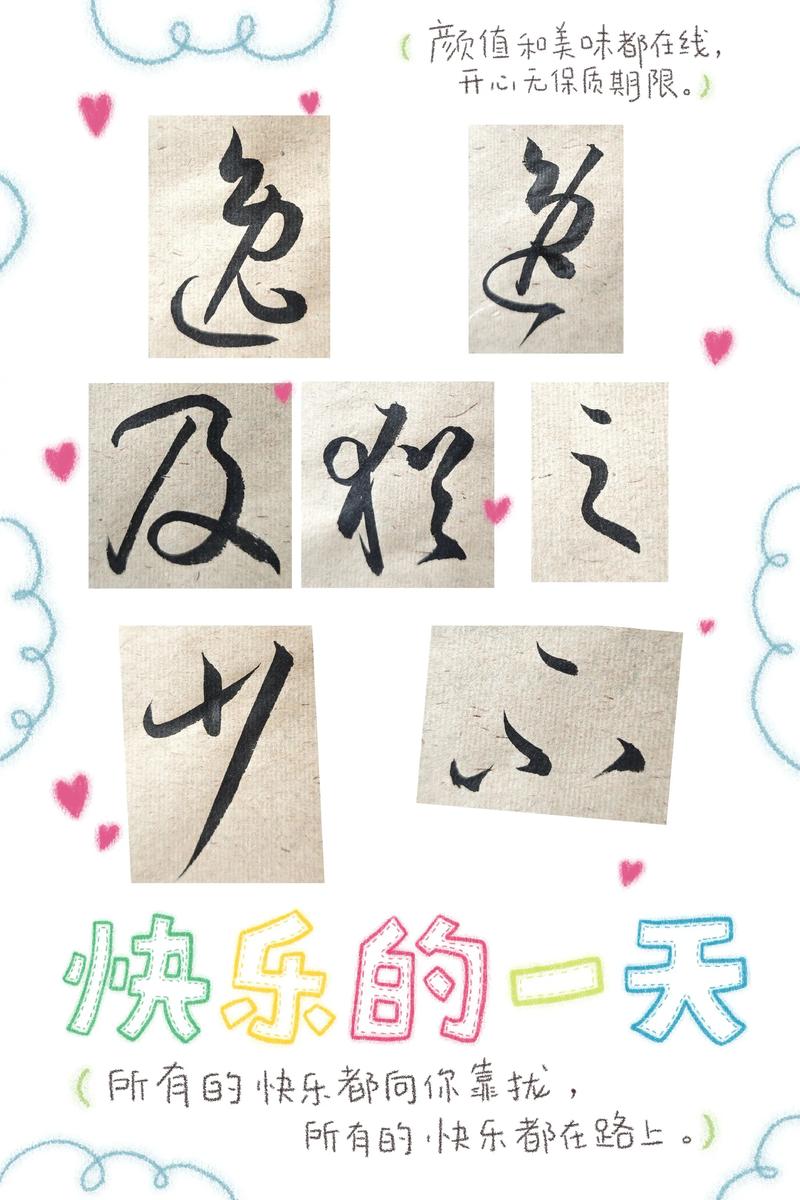 颜值和美味都在线，
开心无保质期限。
逸
及
之
少
不
快乐的一天
所有的快乐都向你靠拢，
所有的快乐都在路上。